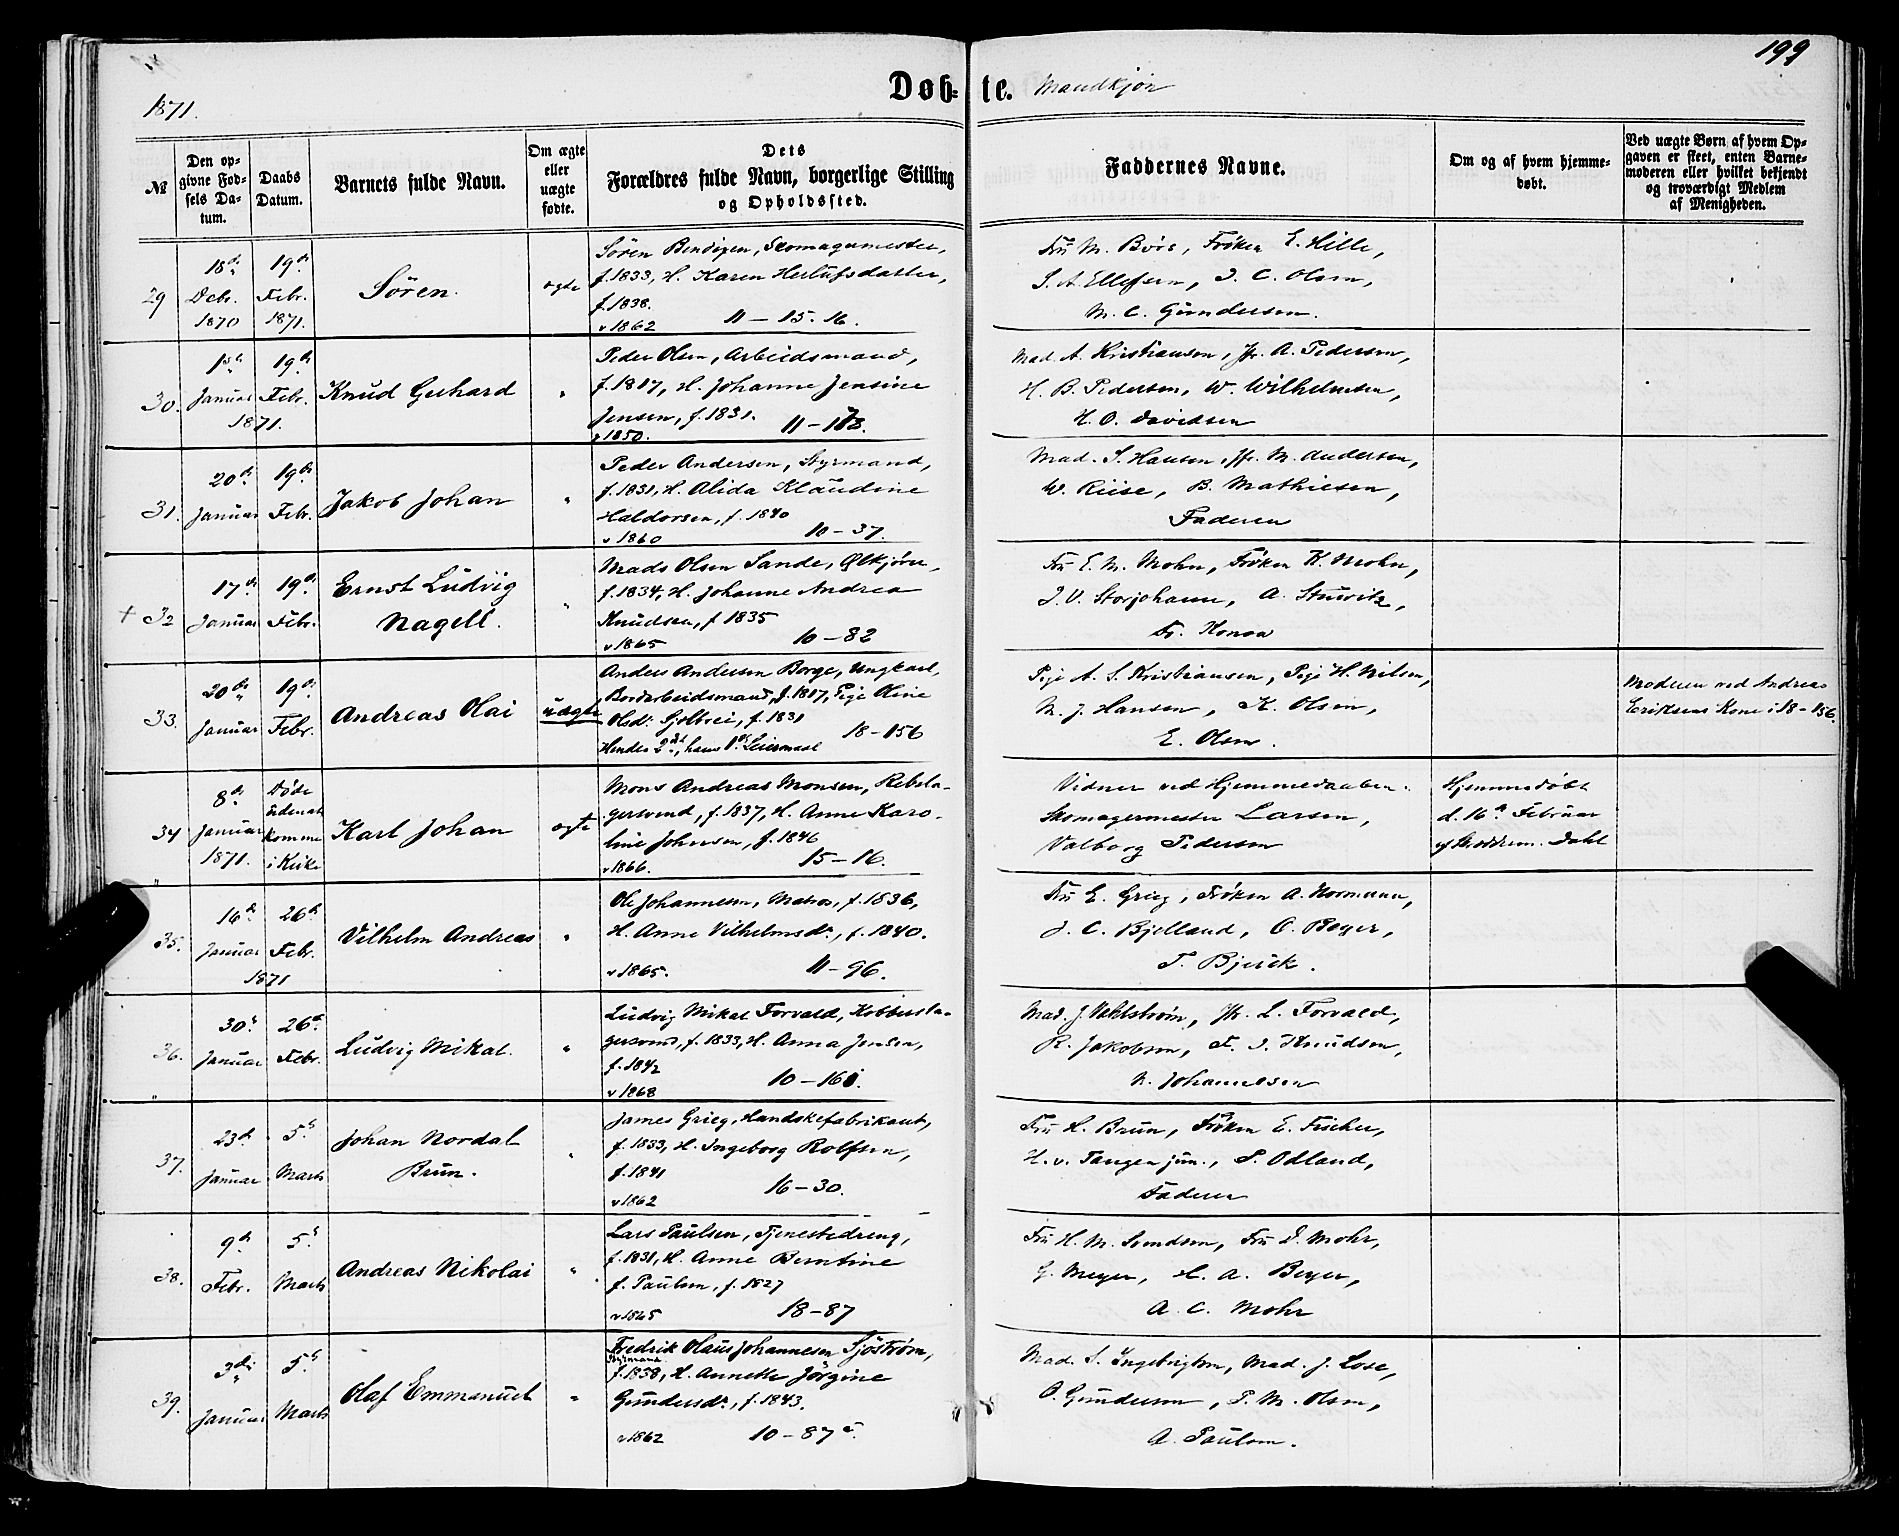 199
Døb- te. Mandkjøn
1871.
№
Den op-
givne Fød-
sels Da-
tum.
Daabs
Datum.
Barnets fulde Navn.
Om ægte
eller
uægte
fødte.
Dets
Forældres fulde Navn, borgerlige Stilling
og Opholdssted.
Faddernes Navne.
Om og af hvem hjemme-
døbt.
Ved uægte Børn af hvem Op-
gaven er skeet, enten Barne-
moderen eller hvilket bekjendt
og troværdigt Medlem
af Menigheden.
29
18de
Debr.
1870
19de
Febr.
1871.
Sören.
ægte
Sören Bendixen, Skomagermester,
f. 1833, H. Karen Herlufsdatter,
f. 1838.
v 1862 11 – 15. 16.
Fru M. Börs, Fröken E. Hille,
S. A. Ellefsen, J. C. Olsen,
M. C. Gundersen.
30.
1ste
Januar
19de
Febr.
1871.
Knud Gerhard
"
Peder Olsen, Arbeidsmand,
f. 1817, H. Johanne Jensine
Jensen, f. 1831.
v 1850. 11 –
Mad. A. Kristiansen, Jfr. A. Pedersen,
H. B. Pedersen, W. Wilhelmsen,
H. O. Davidsen
31.
20de
Januar
19de
Febr.
Jakob Johan
"
Peder Andersen, Styrmand,
f. 1831, H. Alida Klaudine
Haldorsen, f. 1840
v 1860 10 – 37.
Mad. S. Hansen, Jfr. M. Andersen,
W. Riise, B. Mathiesen,
Faderen
+ 32
17de
Januar
19de
Febr.
Ernst Ludvig
Nagell.
"
Mads Olsen Sande, Ølkjører,
f. 1834, H. Johanne Andrea
Knudsen, f 1835
v 1865 10 – 82
Fru E. M. Mohn, Fröken K. Mohn,
J. V. Storjohann, A. Sturitz,
Fr. Konow
33.
20de
Januar
19de
Febr.
Andreas Olai
uægte
Anders Andersen Borge, Ungkarl,
Bordarbeidsmand, f. 1817, Pige Oline
Olsdr. Gjeltvei, f. 1831
Hendes 2det, hans 1ste Leiermaal 18 – 156
Pige A. S. Kristiansen, Pige H. Nilsen,
M. J. Hansen, K. Olsen,
E. Olsen.
Moderen ved Andreas
Eriksens Kone i 18 – 156.
34
8de
Januar
1871.
Døde
uden at
komme
i Kirke
Karl Johan
ægte
Mons Andreas Monsen, Rebsla-
gersvend, f. 1837, H. Anne Karo-
line Johnsen, f. 1846
v 1866. 15 – 16.
Vidner ved Hjemmedaaben.
Skomagermester Larsen,
Valborg Pedersen
Hjemmedøbt
d. 16de Februar
af Jordem. Dahl
35.
16de
Januar
26de
Febr.
1871
Vilhelm Andreas
"
Ole Johannesen, Matros, f. 1836,
H. Anne Vilhelmsdr., f. 1840.
v 1865. 11 – 96.
Fru E. Grieg, Fröken A. Normann,
J. C. Bjelland, O. Beyer,
T. Bjerck.
36.
30te
Januar
26de
Febr.
Ludvig Mikal.
"
Ludvig Mikal Forvald, Kobbersla-
gersvend, f. 1833, H. Anna Jensen,
f. 1842
v 1868 10 –
Mad. J. Wahlstrøm, Jfr. L. Forvald,
R. Jakobsen, F. J. Knudsen,
N. Johannesen
37.
23de
Januar
5te
Marts
Johan Nordal
Brun.
"
James Grieg, Handskefabrikant,
f. 1833, H. Ingeborg Rolfsen,
f. 1841
v 1862 16 – 30.
Fru H. Brun, Fröken E. Fischer,
H. v. Tangen jun., S. Odland,
Faderen
38.
9de
Febr.
5te
Marts
Andreas Nikolai
"
Lars Paulsen, Tjenestedreng,
f. 1831, H. Anne Berntine
f. Paulsen, f. 1827
v 1865 18 – 87
Fru H. M. Svendsen, Fru D. Mohr,
G. Meyer, H. A. Beyer,
A. C. Mohr
39.
3die
Januar
5te
Marts
Olaf Emmanuel
"
Fredrik Olaus Johannesen Sjöström,
Styrmand
f. 1838, H. Annette Jörgine
Gundersdr., f. 1843.
v 1862 10 – 87 c.
Mad. S. Ingebrigtsen, Mad. J. Lose,
O. Gundersen, P. M. Olsen,
A. Paulsen.